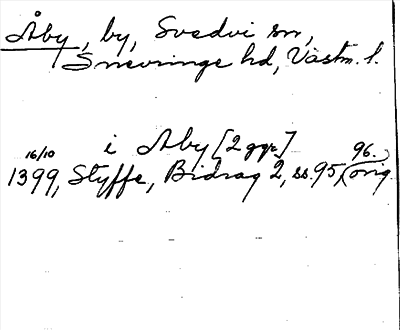 Åby, by, Svedvi sn,
Snevringe hd, Västm. l.
i Aby [2 ggr]
16/10 1399, Styffe, Bidrag 2, ss. 95, 96. (orig.